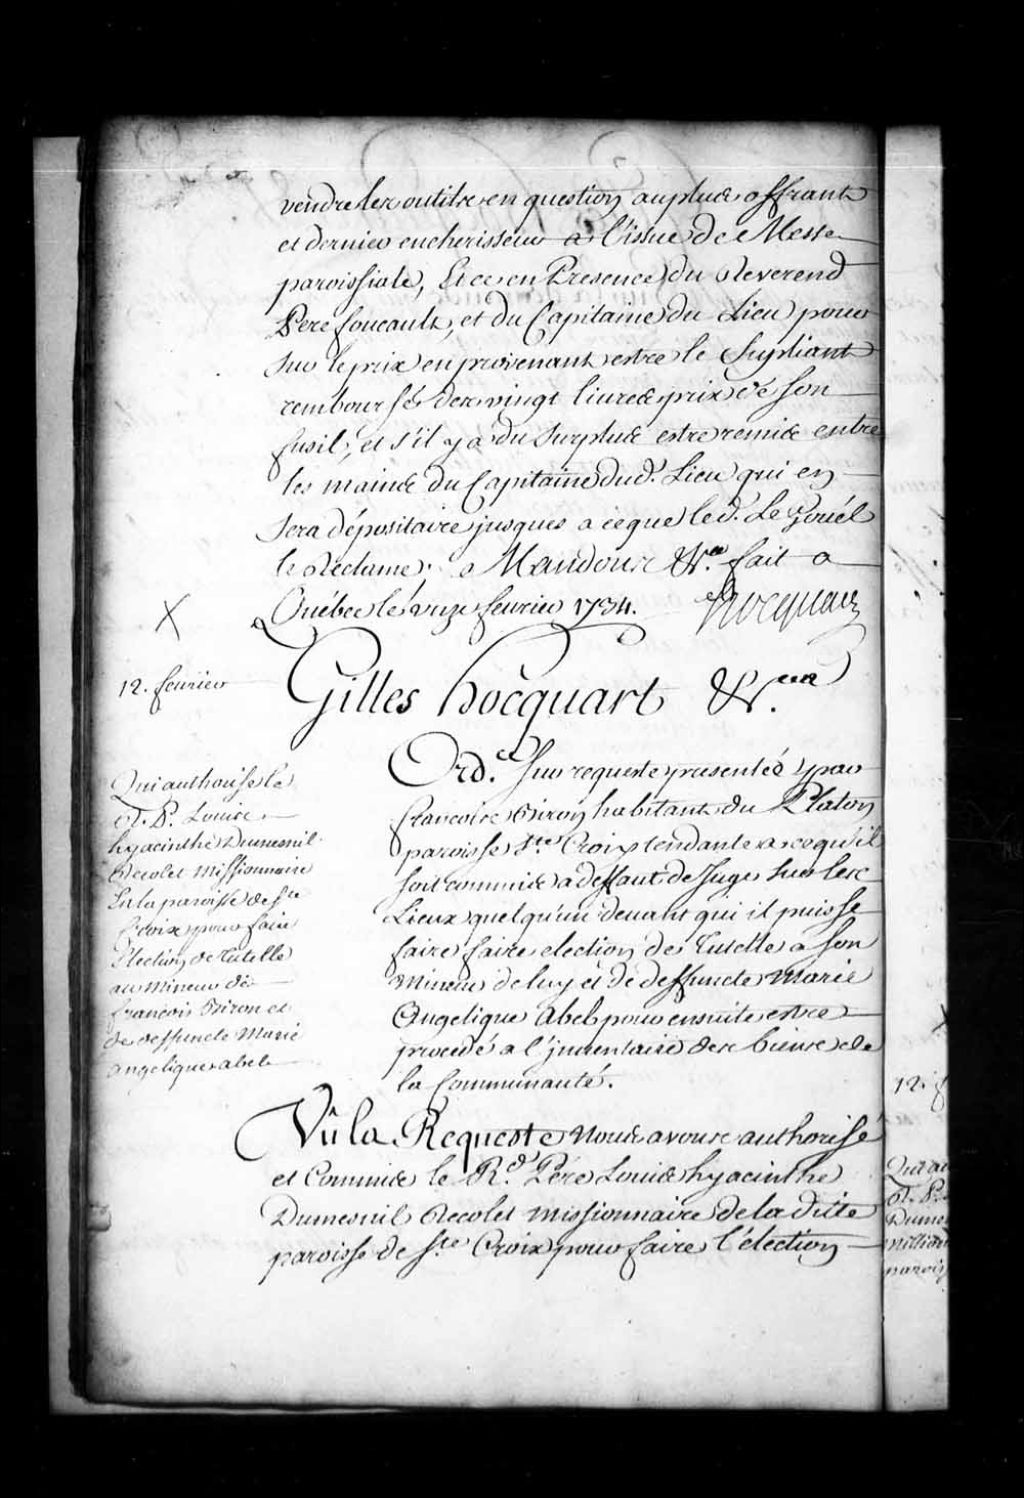 vendre les outils en question au plus offrant
et dernier encherisseur a l'issue de Messe
paroissiale, Et ce en Presence du Reverend
Pere foucault, et du Capitaine du Lieu pour
sur le prix en provenant estre le Supliant
remboursé des vingt livres prix de son
fusil; et s'il y a du surplus estre remis entre
les mains du Capitaine dud. Lieu qui en
sera dépositaire jusques a ce que led. Le Gouël
le Reclame; Mandons &c.a fait a
Québec le fevrier 1734. Hocquart
X
12. fevrier
Gilles hocquart &c.a
Qui authorise le
R. P. Louis
hyacinthe Dumesnil
Recolet Missionnaire
En la paroisse de Ste
Croix pour faire
l'Election de tutelle
au mineur de
françois Biron et
de deffuncte Marie
angelique abel
Ord.ce sur requeste presentée par
francois Biron habitant du Platon
paroisse Ste Croix tendante a ce qu'il
soit commis a deffaut de Juge sur les
Lieux quelqu'un devant qui il puisse
faire faire election de Tutelle a son
Mineur de luy et de deffuncte Marie
Angelique Abel pour ensuite estre
procedé a l'jnventaire des biens de
la Communauté.
Vû la Requeste Nous avons authorisé
et Commis le R.d Pére Louis hyacinthe
Dumesnil Recolet Missionnaire de la dite
paroisse de Ste Croix pour faire l'élection
12. f
Qui au
R. P.
Dumes
paroiss